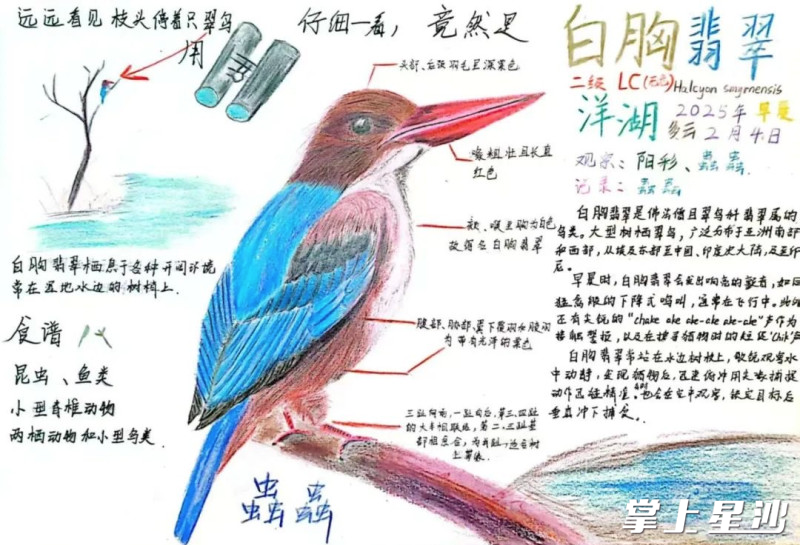 远远看见枝头停着只翠鸟
用
仔细一看，竟然是
白胸翡翠
二级 LC(无危) Halcyon smyrnensis
洋湖 2025年 早晨
多云 2月4日
观察：阳彩、蟲蟲
记录：蟲蟲
头部、后颈羽毛呈深栗色
嘴粗壮且长直
红色
颏、喉至胸为白色
故得名白胸翡翠
腹部、胁部、翼下覆羽和腋羽
为带有光泽的栗色
三趾向前，一趾向后，第三、四趾
的大半相联结，第二、三趾基
部相愈合，为并趾
白胸翡翠栖息于各种开阔环境
常在湿地水边的树梢上.
食谱
昆虫、鱼类
小型脊椎动物
两栖动物和小型鸟类.
白胸翡翠是佛法僧目翠鸟科翡翠属的
鸟类。大型树栖翠鸟，广泛分布于亚洲南部
和西部，从埃及东部至中国、印度次大陆，及至印
尼。
早晨时，白胸翡翠会发出响亮的颤音，如同
猛高级的下降式鸣叫，通常在飞行中。
还有尖锐的"chake ake ake-ake ake-ake"声作为
接触警报，以及在捕捉猎物时的短促"Chik"声
白胸翡翠常站在水边树枝上，敏锐观察水
中动静，发现猎物后，迅速俯冲用尖嘴捕捉
动作迅猛精准。也会在空中观察，锁定目标后
垂直冲下捕食.
蟲蟲
掌上星沙